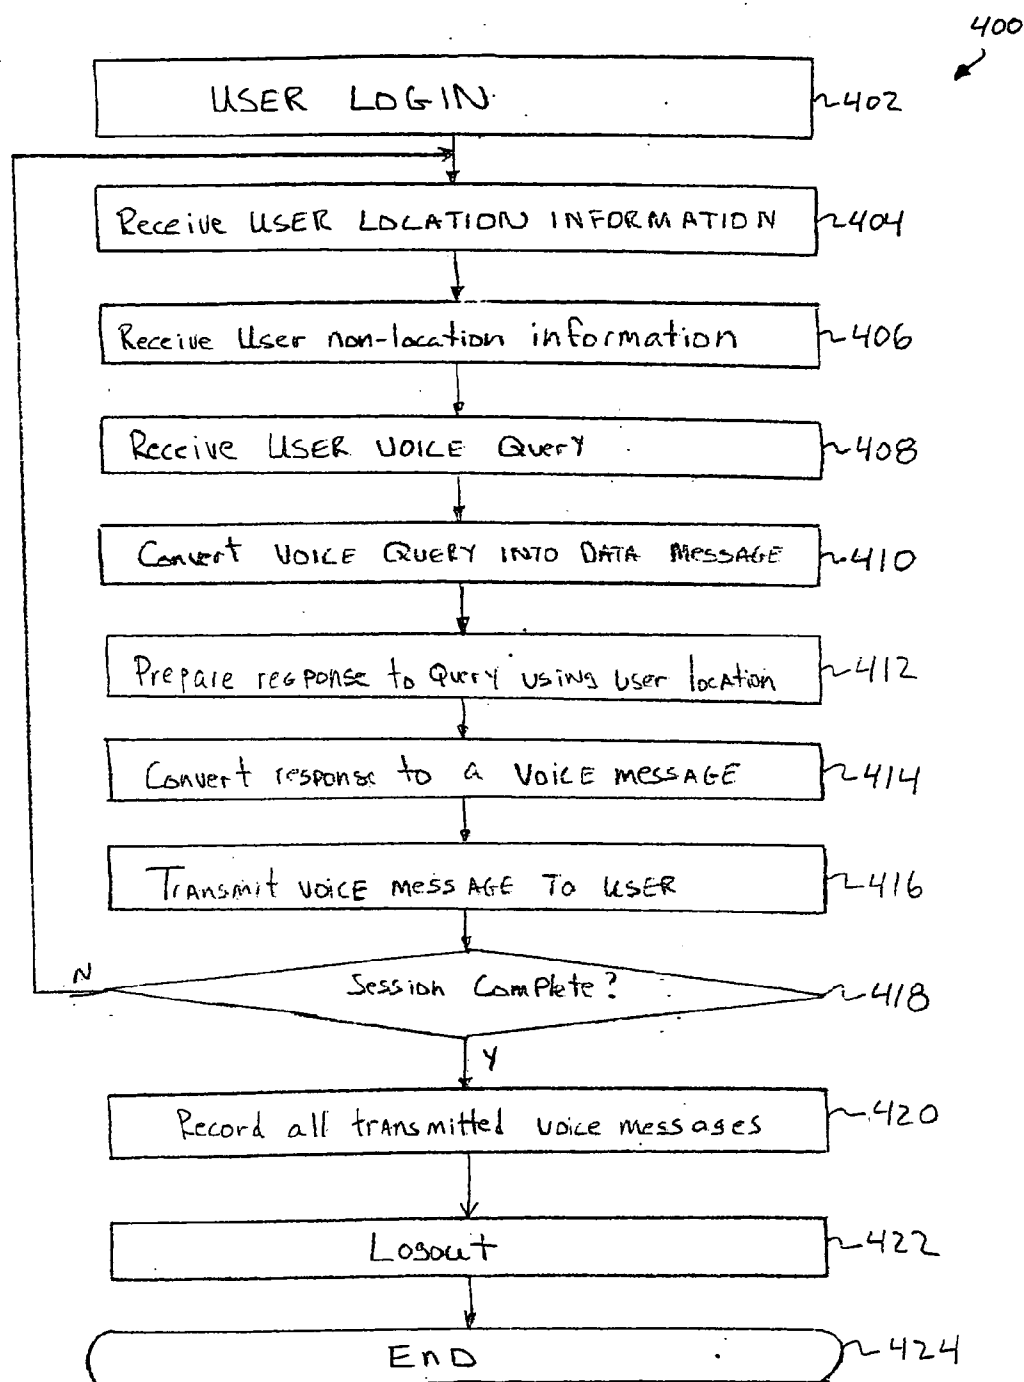 400
USER LOGIN
402
Receive USER LOCATION INFORMATION
404
Receive User non-location information
406
Receive USER VOICE Query
408
Convert VOICE QUERY INTO DATA MESSAGE
410
Prepare response to Query using user location
412
Convert response to a VOICE MESSAGE
414
Transmit voice message to user
416
N
Session Complete?
418
Y
Record all transmitted voice messages
420
Logout
422
End
424